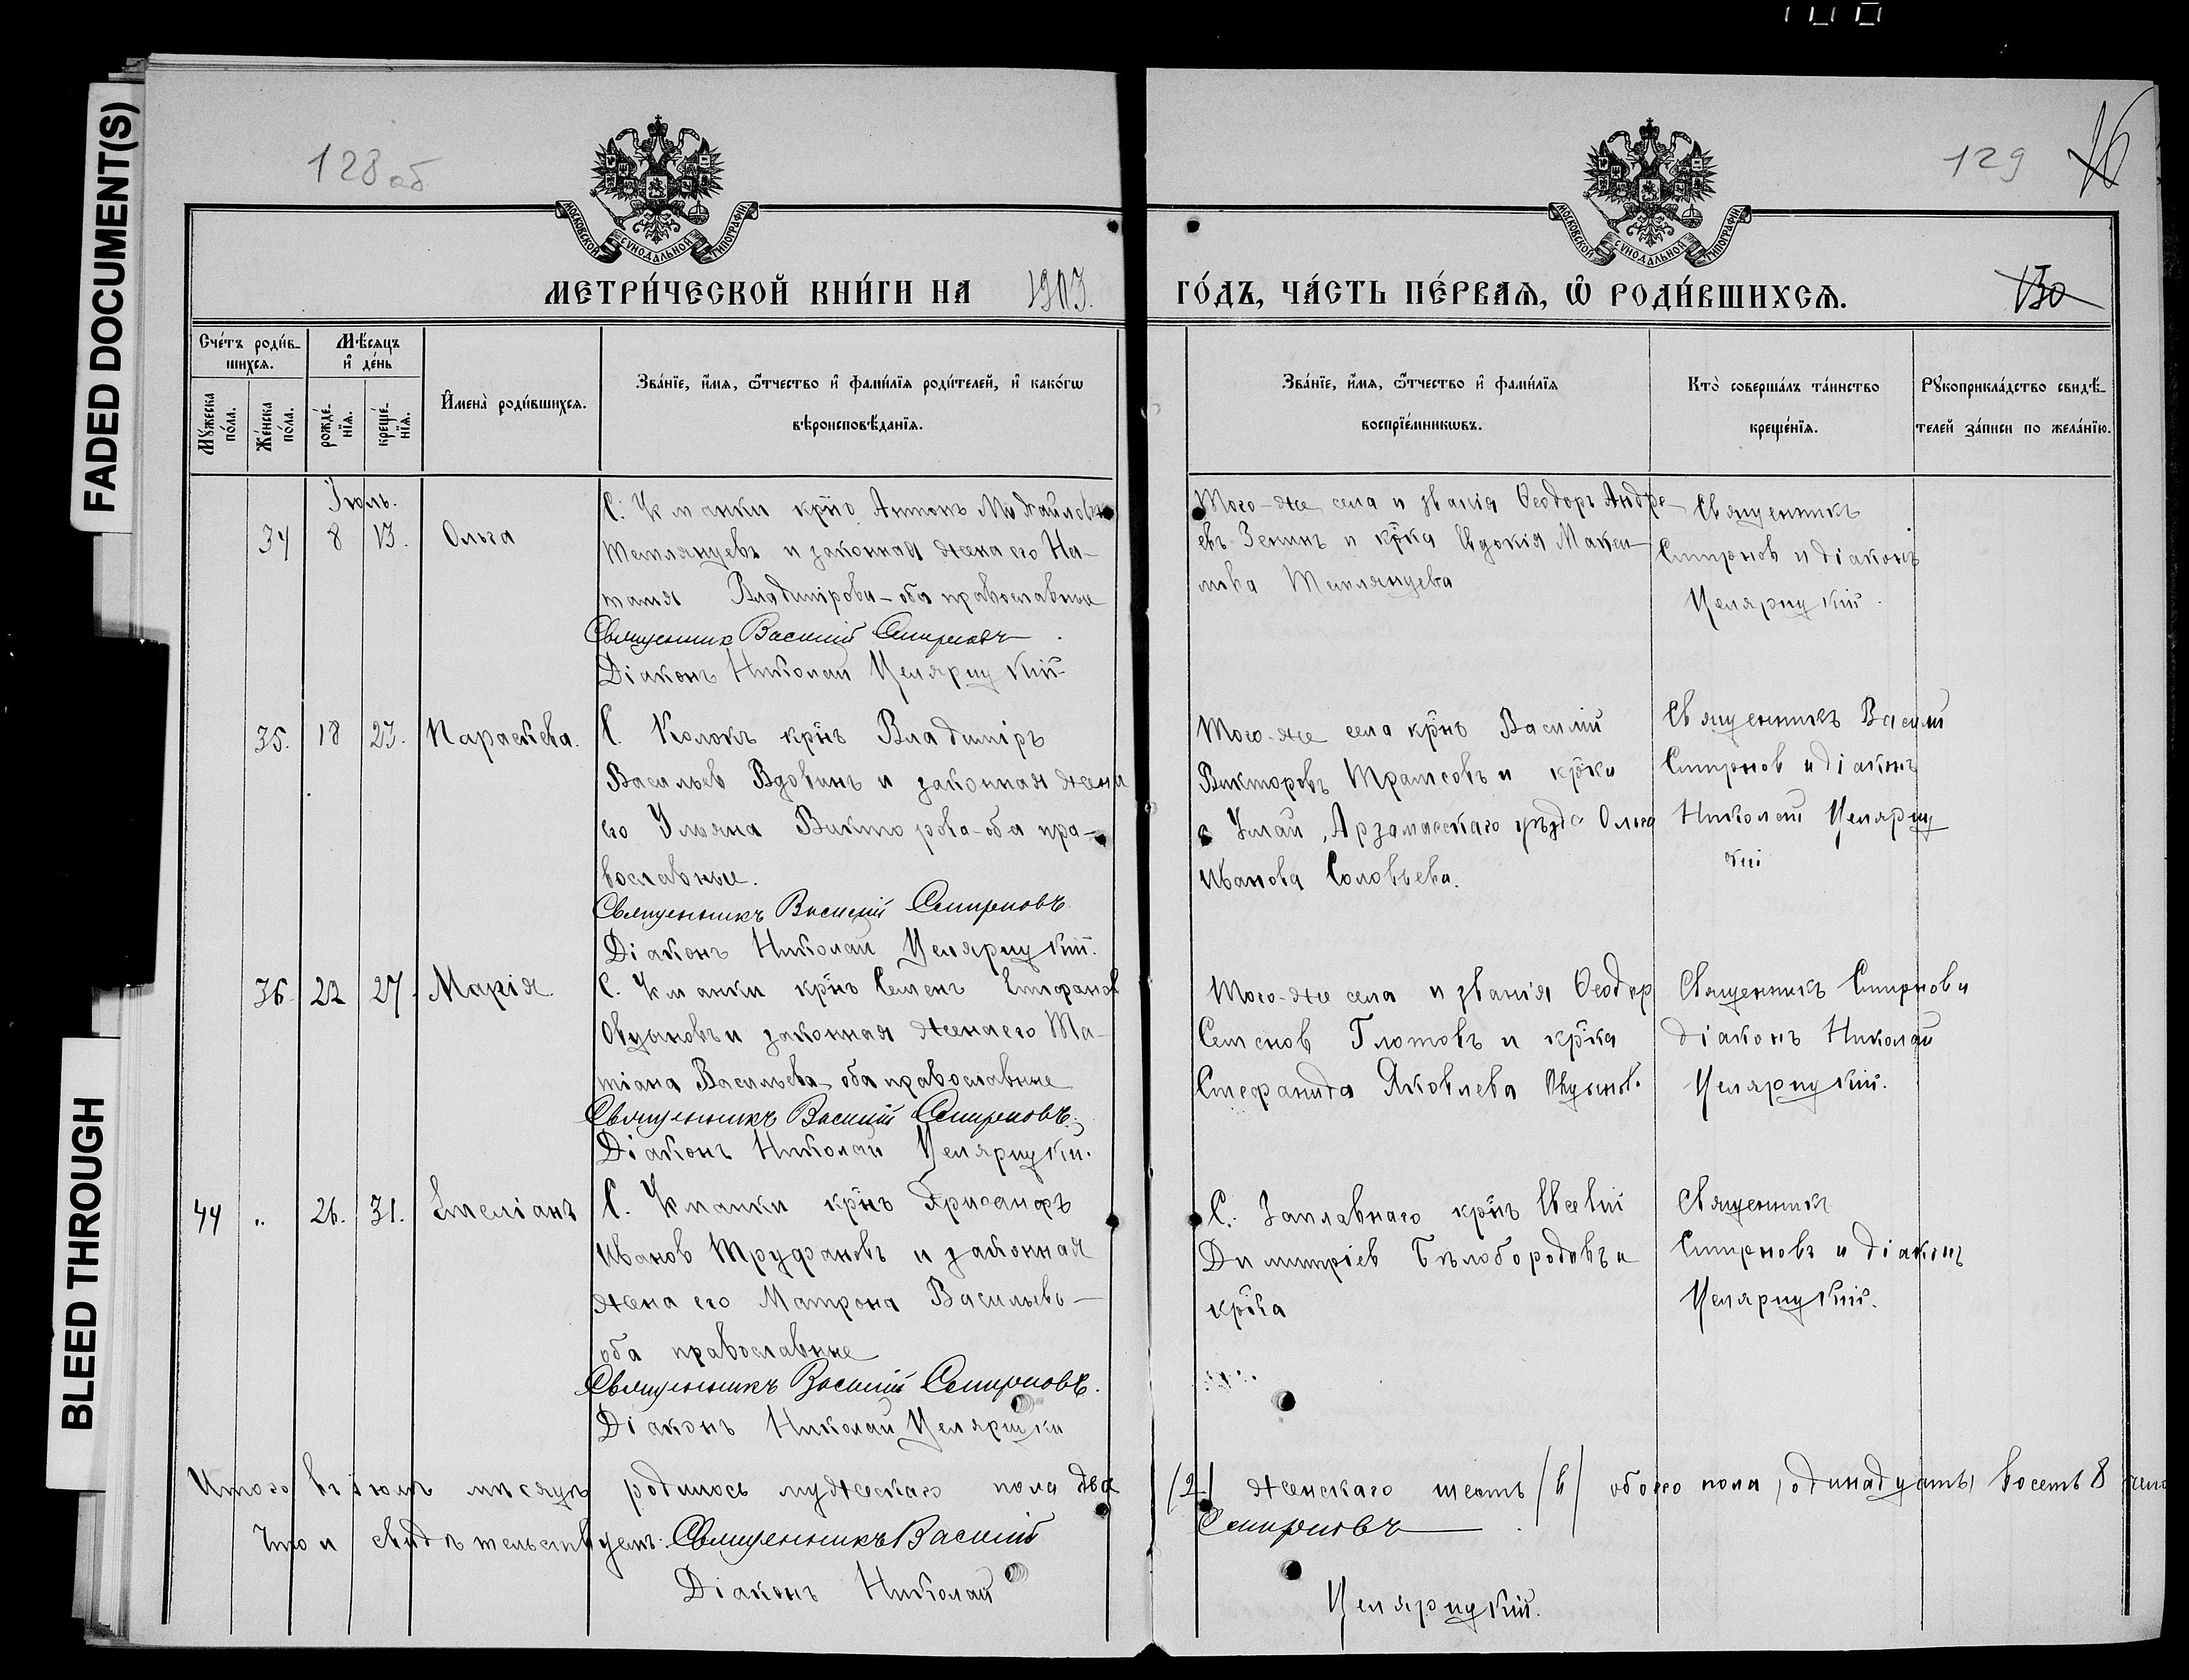 FADED DOCUMENT(S)
BLEED THROUGH
128 об
129
16
130
МОСКОВСКОЙ СѴНОДАЛЬНОЙ ТИПОГРАФІИ
МОСКОВСКОЙ СѴНОДАЛЬНОЙ ТИПОГРАФІИ
МЕТРИ́ЧЕСКОЙ КНИ́ГИ НА 1903.
ГО́ДЪ, ЧА́СТЬ ПЕ́РВАѦ, Ѡ҆ РОДИ́ВШИХСѦ.
Сче́тъ роди́в-
шихсѧ.
Мѣ́сѧцъ
и҆ де́нь
Мꙋ́жеска
по́ла.
Же́нска
по́ла.
рожде́-
нїѧ.
креще́-
нїѧ.
И҆мена̀ роди́вшихсѧ.
Зва́нїе, и҆́мѧ, ѻ҆́тчество и҆ фами́лїѧ роди́телей, и҆ како́гѡ
вѣроисповѣ́данїѧ.
Зва́нїе, и҆́мѧ, ѻ҆́тчество и҆ фами́лїѧ
воспрїе́мникѡвъ.
Кто̀ соверша́лъ та́инство
креще́нїѧ.
Рꙋкоприкла́дство свидѣ́-
телей за́писи по жела́нїю.
Іюль.
34 8 13. Ольга
С. крнъ Антонъ Михайловъ
и законная жена его На-
талія Владимірова - оба православные
Священникъ Василій Смирновъ
Діаконъ Николай
Того-же села и званія Ѳеодоръ Андре-
евъ Зенинъ и крка Евдокія Макси-
мова
Священникъ
Смирнов и діаконъ
35. 18 23. Параскева.
С. Колокъ крнъ Владиміръ
Васильев Вдовинъ и законная жена
его Ульяна Викторова - оба пра-
вославные.
Священникъ Василій Смирновъ
Діаконъ Николай
Того-же села крнъ Василій
Викторовъ и крка
с. Арзамасскаго уѣзда Ольга
Иванова Соловьева.
Священникъ Василій
Смирнов и діаконъ
Николай
кій
36. 22 27. Марія.
С. крнъ Семенъ Епифанов
и законная жена его Та-
тіана Васильева - оба православные
Священникъ Василій Смирновъ.
Діаконъ Николай
Того-же села и званія Ѳеодор
Семенов Глотовъ и крка
Стефанида Яковлева
Священникъ Смирнов и
діаконъ Николай
44 " 26. 31. Емеліанъ
С. крнъ Хрисанфъ
Иванов Труфановъ и законная
жена его Матрона Васильева -
оба православные
Священникъ Василій Смирновъ.
Діаконъ Николай
С. Заплавнаго крнъ Евсевій
Димитріев Бѣлобородовъ и
крка
Священник
Смирновъ и діаконъ
Итого въ іюлѣ мѣсяцѣ родилось мужескаго пола два (2) женскаго шесть (6) обоего пола (одинадцать) восемь 8
Что и свидѣтельствуемъ: Священникъ Василій Смирновъ
Діаконъ Николай